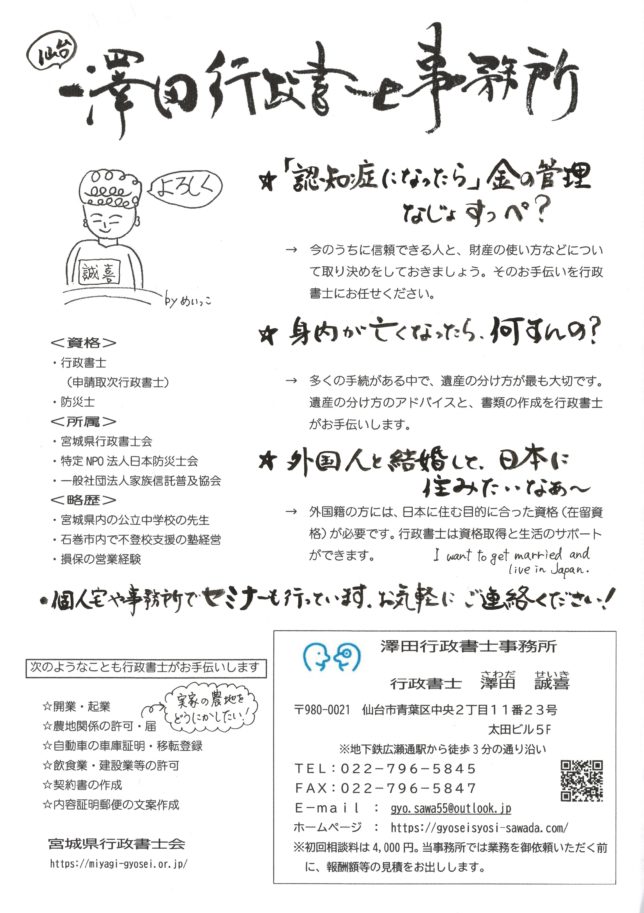 仙台
澤田行政書士事務所
よろしく
誠喜
by めいっこ
★「認知症になったら」金の管理
なじょすっぺ？
→ 今のうちに信頼できる人と、財産の使い方などについ
て取り決めをしておきましょう。そのお手伝いを行政
書士にお任せください。
★ 身内が亡くなったら、何すんの？
→ 多くの手続がある中で、遺産の分け方が最も大切です。
遺産の分け方のアドバイスと、書類の作成を行政書士
がお手伝いします。
★ 外国人と結婚して、日本に
住みたいなぁ～
→ 外国籍の方には、日本に住む目的に合った資格（在留資
格）が必要です。行政書士は資格取得と生活のサポート
ができます。
I want to get married and
live in Japan.
＜資格＞
・行政書士
（申請取次行政書士）
・防災士
＜所属＞
・宮城県行政書士会
・特定NPO法人日本防災士会
・一般社団法人家族信託普及協会
＜略歴＞
・宮城県内の公立中学校の先生
・石巻市内で不登校支援の塾経営
・損保の営業経験
・個人宅や事務所でセミナーも行っています。お気軽にご連絡ください！
次のようなことも行政書士がお手伝いします
☆開業・起業
☆農地関係の許可・届
実家の農地を
どうにかしたい！
☆自動車の車庫証明・移転登録
☆飲食業・建設業等の許可
☆契約書の作成
☆内容証明郵便の文案作成
宮城県行政書士会
https://miyagi-gyosei.or.jp/
澤田行政書士事務所
さわだ せいき
行政書士 澤田 誠喜
〒980-0021 仙台市青葉区中央２丁目１１番２３号
太田ビル５Ｆ
※地下鉄広瀬通駅から徒歩３分の通り沿い
ＴＥＬ：022-796-5845
ＦＡＸ：022-796-5847
Ｅ－ｍａｉｌ : gyo.sawa55@outlook.jp
ホームページ : https://gyoseisyosi-sawada.com/
※初回相談料は 4,000 円。当事務所では業務を御依頼いただく前
に、報酬額等の見積をお出しします。